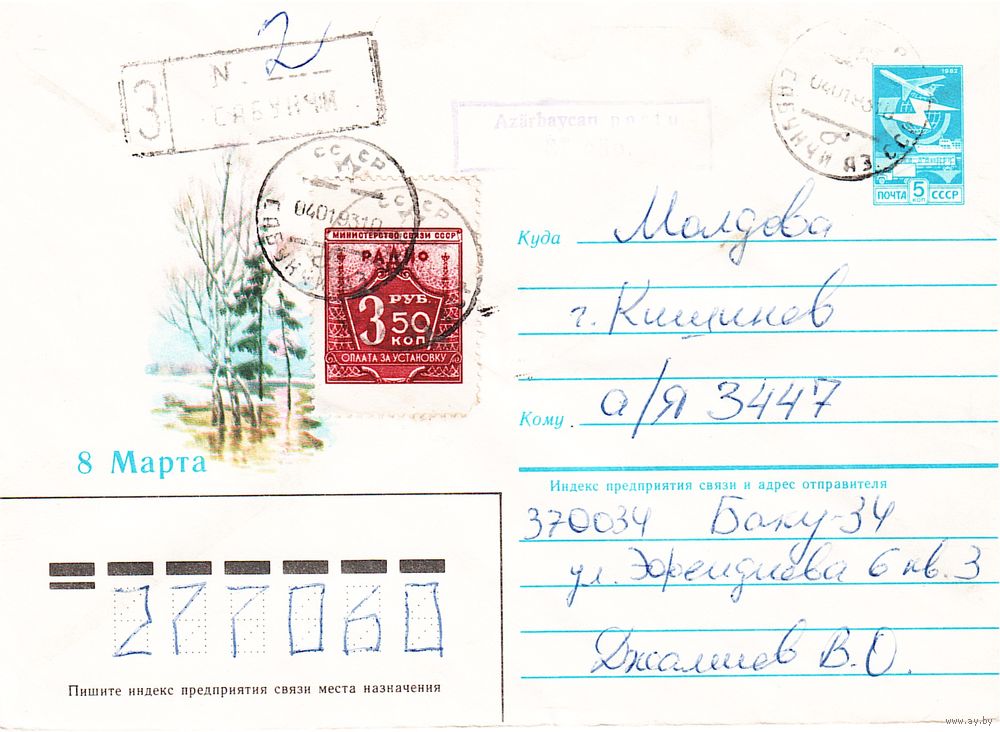 З
N. 2
САБУНЧИ
Azärbaycan
СССР
04019310
САБУНЧИ
СССР
МИНИСТЕРСТВО СВЯЗИ СССР
РАДИО
3 РУБ. 50 КОП
ОПЛАТА ЗА УСТАНОВКУ
1982
ПОЧТА 5 КОП СССР
8 Марта
Куда Молдова
г. Кишинов
Кому а/я 3447
Индекс предприятия связи и адрес отправителя
370034 Баку-34
ул. Эфендиева 6 кв. 3
В.О.
277060
Пишите индекс предприятия связи места назначения
www.ay.by